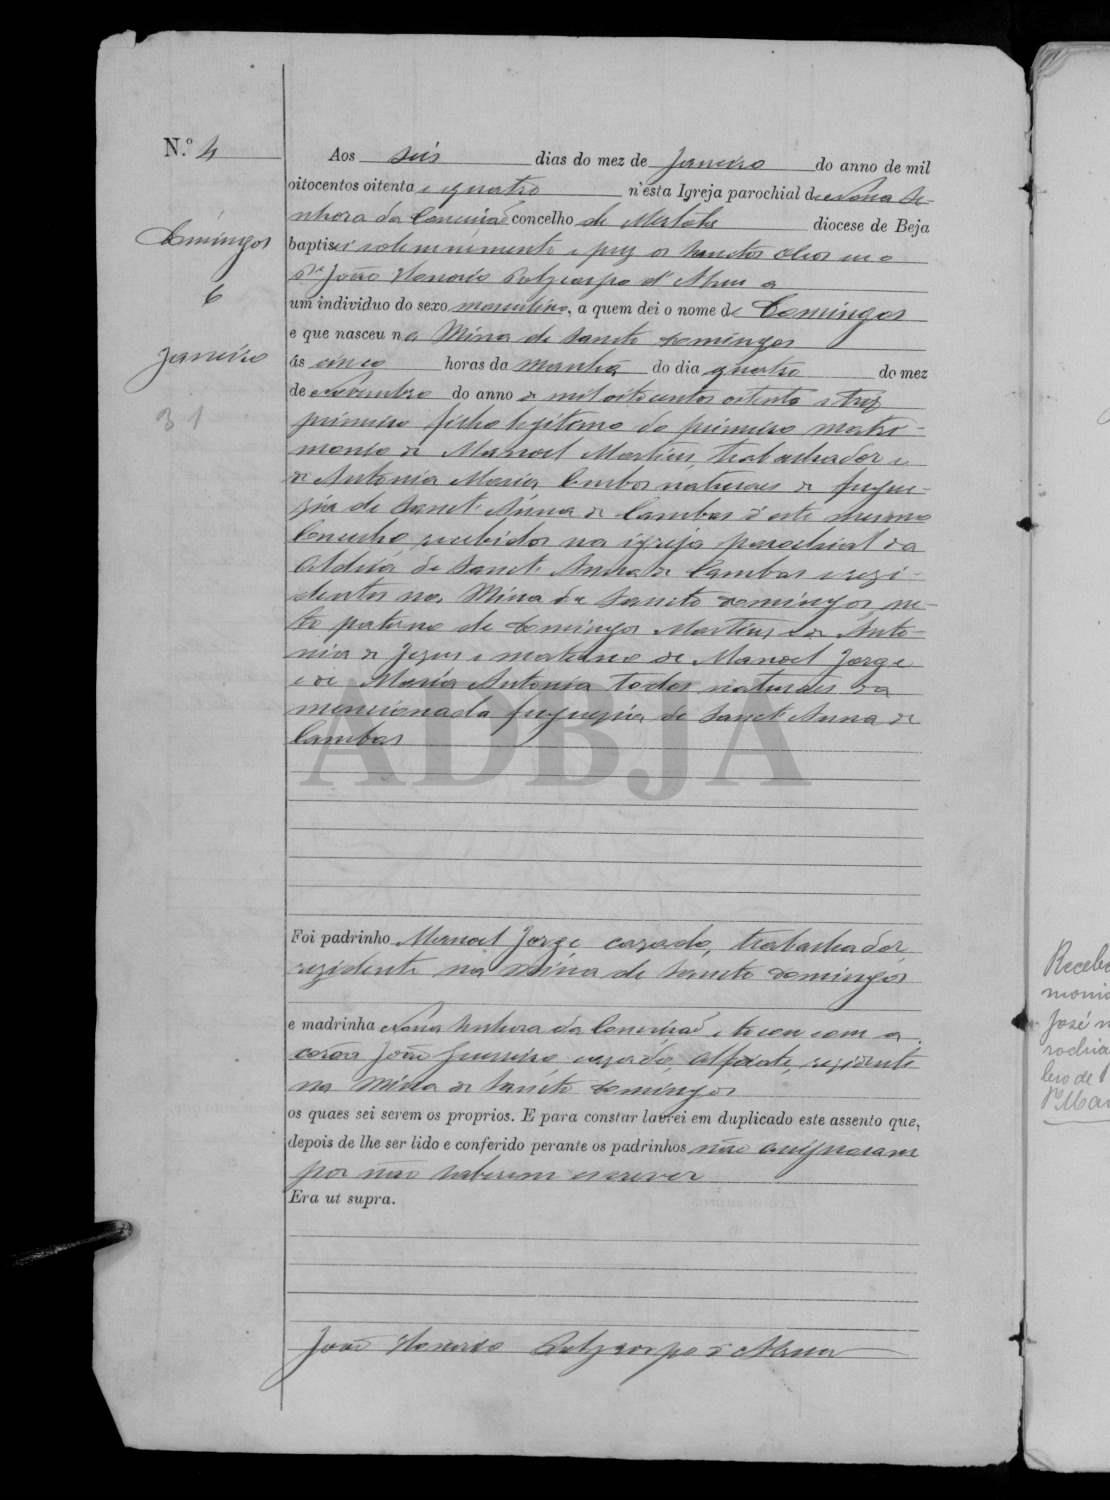 N.º 4
Domingos
6
Janeiro
31
Aos seis dias do mez de Janeiro do anno de mil
oitocentos oitenta e quatro n'esta Igreja parochial de Nossa Se-
nhora da Conceição concelho de Mertola diocese de Beja
baptisei solemnemente e puz os sanctos oleos eu o
João Honorio Polycarpo d'
um individuo do sexo masculino, a quem dei o nome de Domingos
e que nasceu na Mina de Sancto Domingos
ás cinco horas da manhã do dia quatro do mez
de Novembro do anno de mil oito centos oitenta e trez
primeiro filho legitimo do primeiro matri-
monio de Manoel Martins, trabalhador e
de Antonia Maria ambos naturaes da fregue-
zia de Sanct' Anna de Cambas d'este mesmo
Concelho recebidos na igreja parochial da
Aldeia de Sanct' Anna de Cambas e rezi-
dentes na Mina de Sancto Domingos, ne-
to paterno de Domingos Martins e de Anto-
nia de Jezus e materno de Manoel Jorge
e de Maria Antonia todos naturaes da
mencionada freguezia de Sanct' Anna de
Cambas
ADBJA
Foi padrinho Manoel Jorge cazado, trabalhador,
rezidente na Mina de Sancto Domingos
e madrinha Nossa Senhora da Conceição e tocou com a
corôa João Guerreiro cazado, Alfaiate, rezidente
na Mina de Sancto Domingos
os quaes sei serem os proprios. E para constar lavrei em duplicado este assento que,
depois de lhe ser lido e conferido perante os padrinhos não assignaram
por não saberem escrever
Era ut supra.
João Honorio Polycarpo d'
Receb
moni
José
rochia
de
Mar